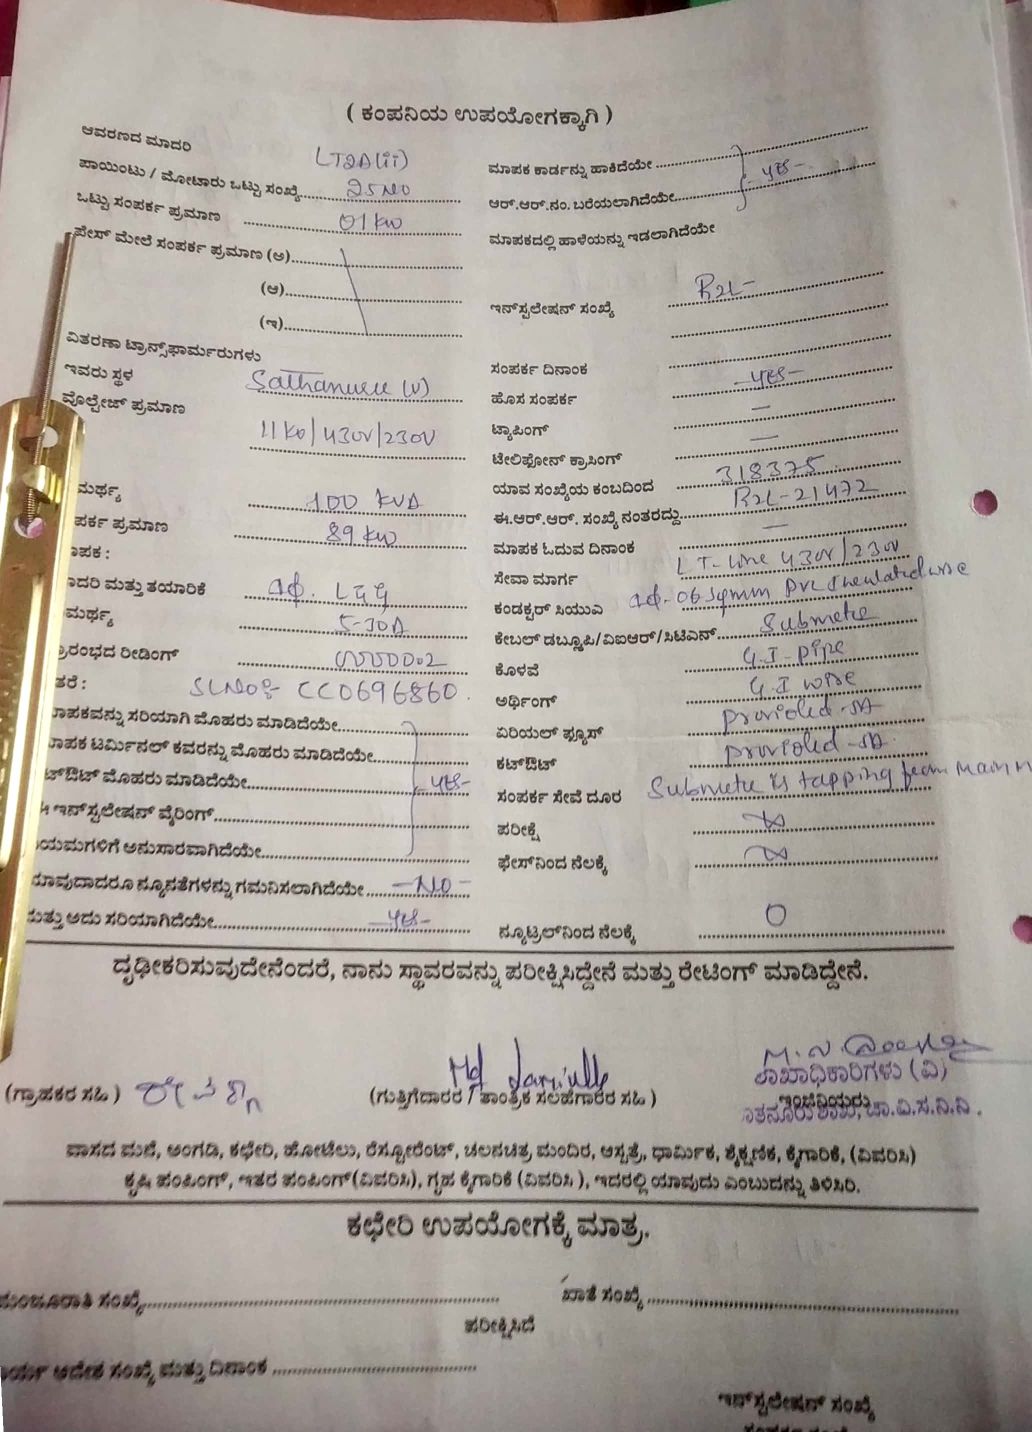 ( ಕಂಪನಿಯ ಉಪಯೋಗಕ್ಕಾಗಿ )
ಆವರಣದ ಮಾದರಿ LT2A(ii)
ಪಾಯಿಂಟು / ಮೋಟಾರು ಒಟ್ಟು ಸಂಖ್ಯೆ 25 NO
ಒಟ್ಟು ಸಂಪರ್ಕ ಪ್ರಮಾಣ 01 KW
ಫೇಸ್ ಮೇಲೆ ಸಂಪರ್ಕ ಪ್ರಮಾಣ (ಅ)
(ಆ)
(ಇ)
ವಿತರಣಾ ಟ್ರಾನ್ಸ್‌ಫಾರ್ಮರುಗಳು
ಇವರು ಸ್ಥಳ Sathanuru (V)
ವೋಲ್ಟೇಜ್ ಪ್ರಮಾಣ
11 KV/430V/230V
ಮರ್ಥ್ಯ 100 KVA
ಪರ್ಕ ಪ್ರಮಾಣ 89 KW
ಾಪಕ :
ಾದರಿ ಮತ್ತು ತಯಾರಿಕೆ 1ф. L&G
ಮರ್ಥ್ಯ 5-30A
ಾರಂಭದ ರೀಡಿಂಗ್ 000000.2
ತರೆ : SLNO: CC0696860.
ಾಪಕವನ್ನು ಸರಿಯಾಗಿ ಮೊಹರು ಮಾಡಿದೆಯೇ
ಾಪಕ ಟರ್ಮಿನಲ್ ಕವರನ್ನು ಮೊಹರು ಮಾಡಿದೆಯೇ
ಟ್‌ಔಟ್ ಮೊಹರು ಮಾಡಿದೆಯೇ -yes-
ಇನ್‌ಸ್ಟಲೇಷನ್ ವೈರಿಂಗ್
ಯಮಗಳಿಗೆ ಅನುಸಾರವಾಗಿದೆಯೇ
ಯಾವುದಾದರೂ ನ್ಯೂನತೆಗಳನ್ನು ಗಮನಿಸಲಾಗಿದೆಯೇ -NO-
ಮತ್ತು ಅದು ಸರಿಯಾಗಿದೆಯೇ -yes-
ಮಾಪಕ ಕಾರ್ಡನ್ನು ಹಾಕಿದೆಯೇ
ಆರ್.ಆರ್.ನಂ. ಬರೆಯಲಾಗಿದೆಯೇ -yes-
ಮಾಪಕದಲ್ಲಿ ಹಾಳೆಯನ್ನು ಇಡಲಾಗಿದೆಯೇ
ಇನ್‌ಸ್ಟಲೇಷನ್ ಸಂಖ್ಯೆ R2L-
ಸಂಪರ್ಕ ದಿನಾಂಕ
ಹೊಸ ಸಂಪರ್ಕ -yes-
ಟ್ಯಾಪಿಂಗ್ —
ಟೇಲಿಫೋನ್ ಕ್ರಾಸಿಂಗ್ —
ಯಾವ ಸಂಖ್ಯೆಯ ಕಂಬದಿಂದ 318375
ಈ.ಆರ್.ಆರ್. ಸಂಖ್ಯೆ ನಂತರದ್ದು R2L-21472
ಮಾಪಕ ಓದುವ ದಿನಾಂಕ —
ಸೇವಾ ಮಾರ್ಗ LT-line 430V/230V
ಕಂಡಕ್ಟರ್ ಸಿಯುಎ 1ф-06 sqmm PVC Insulated wire
ಕೇಬಲ್ ಡಬ್ಲೂಪಿ/ವಿಐಆರ್/ಸಿಟಿಎಸ್ Submeter
ಕೊಳವೆ G.I-pipe
ಅರ್ಥಿಂಗ್ G.I wire
ಏರಿಯಲ್ ಫ್ಯೂಸ್ Provided-5A
ಕಟ್‌ಔಟ್ provided-5A.
ಸಂಪರ್ಕ ಸೇವೆ ದೂರ Submeter is tapping from main
ಪರೀಕ್ಷೆ
ಫೇಸ್‌ನಿಂದ ನೆಲಕ್ಕೆ
ನ್ಯೂಟ್ರಲ್‌ನಿಂದ ನೆಲಕ್ಕೆ 0
ದೃಢೀಕರಿಸುವುದೇನೆಂದರೆ, ನಾನು ಸ್ಥಾವರವನ್ನು ಪರೀಕ್ಷಿಸಿದ್ದೇನೆ ಮತ್ತು ರೇಟಿಂಗ್ ಮಾಡಿದ್ದೇನೆ.
(ಗ್ರಾಹಕರ ಸಹಿ )
(ಗುತ್ತಿಗೆದಾರರ / ತಾಂತ್ರಿಕ ಸಲಹೆಗಾರರ ಸಹಿ )
ಶಾಖಾಧಿಕಾರಿಗಳು (ವಿ)
ಇಂಜಿನಿಯರು
ಾತನೂರು ಶಾಖೆ, ಚಾ.ವಿ.ಸ.ನಿ.ನಿ.
ವಾಸದ ಮನೆ, ಅಂಗಡಿ, ಕಛೇರಿ, ಹೋಟೆಲು, ರೆಸ್ಟೋರೆಂಟ್, ಚಲನಚಿತ್ರ ಮಂದಿರ, ಆಸ್ಪತ್ರೆ, ಧಾರ್ಮಿಕ, ಶೈಕ್ಷಣಿಕ, ಕೈಗಾರಿಕೆ, (ವಿವರಿಸಿ)
ಕೃಷಿ ಪಂಪಿಂಗ್, ಇತರ ಪಂಪಿಂಗ್(ವಿವರಿಸಿ), ಗೃಹ ಕೈಗಾರಿಕೆ (ವಿವರಿಸಿ ), ಇದರಲ್ಲಿ ಯಾವುದು ಎಂಬುದನ್ನು ತಿಳಿಸಿರಿ.
ಕಛೇರಿ ಉಪಯೋಗಕ್ಕೆ ಮಾತ್ರ.
ಮಂಜೂರಾತಿ ಸಂಖ್ಯೆ
ಖಾತೆ ಸಂಖ್ಯೆ
ಪರೀಕ್ಷಿಸಿದೆ
ಾರ್ಯ ಆದೇಶ ಸಂಖ್ಯೆ ಮತ್ತು ದಿನಾಂಕ
ಇನ್‌ಸ್ಟಲೇಷನ್ ಸಂಖ್ಯೆ